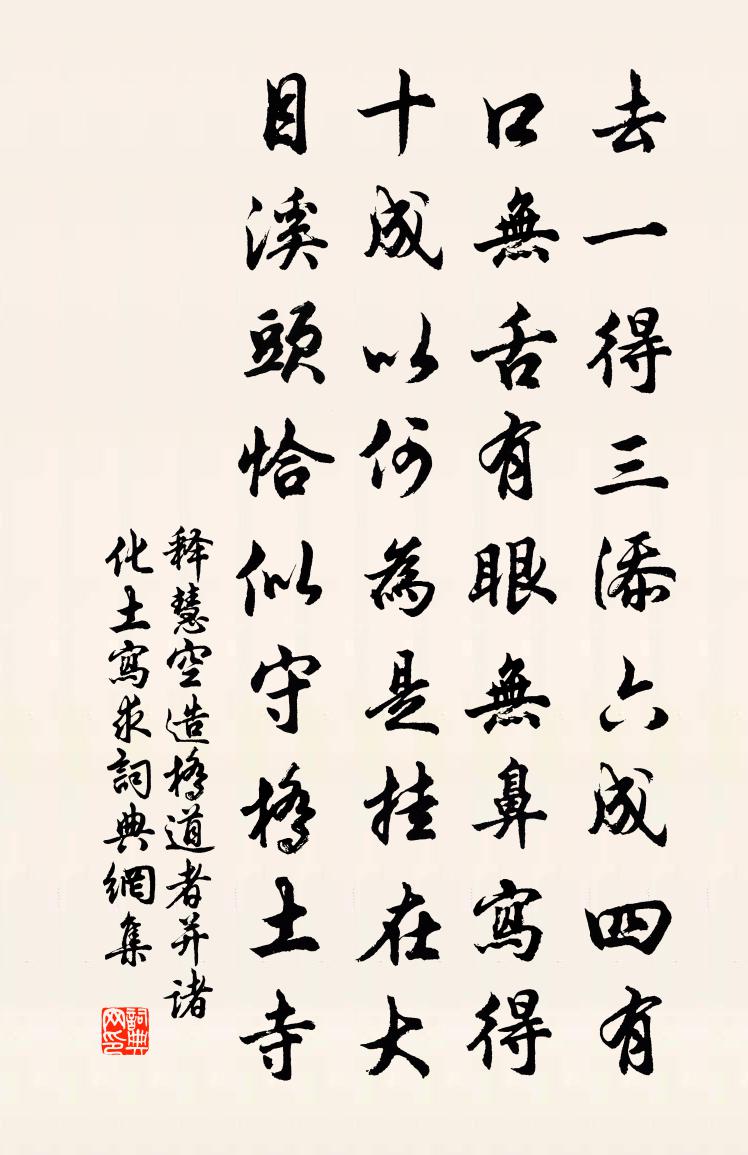 去一得三添六成四有
口無舌有眼無鼻寫得
十成以何為是挂在大
目溪頭恰似守橋土寺
释慧空造橋道者并諸
化土寫求詞典網集
詞典网印